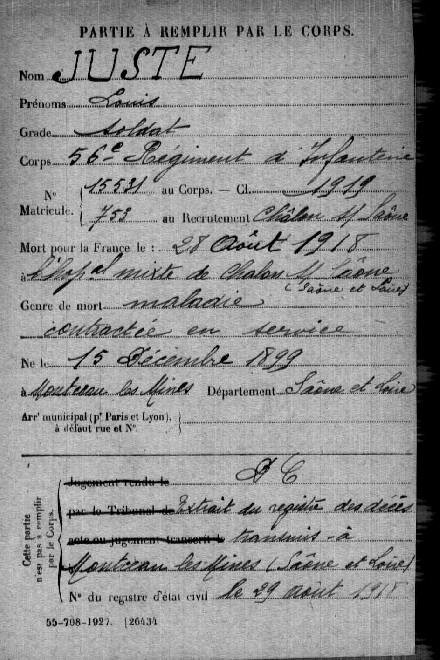 PARTIE À REMPLIR PAR LE CORPS.
Nom JUSTE
Prénoms Louis
Grade soldat
Corps 56e Régiment d'Infanterie
N° Matricule. 15531 au Corps. — Cl. 1919
753 au Recrutement Châlon s/ Saône
Mort pour la France le : 28 Août 1918
à l'Hopal mixte de Chalon s/ Saône
(Saône et Loire)
Genre de mort maladie
contractée en service
Né le 15 Décembre 1899
à Montceau les Mines Département Saône et Loire
Arrt municipal (pr Paris et Lyon), à défaut rue et N°.
Cette partie n'est pas à remplir par le Corps.
Jugement rendu le
par le Tribunal de Extrait du registre des décès
acte ou jugement transcrit le transmis à
Montceau les Mines (Saône et Loire)
N° du registre d'état civil le 29 août 1918
55-708-1927. [26434